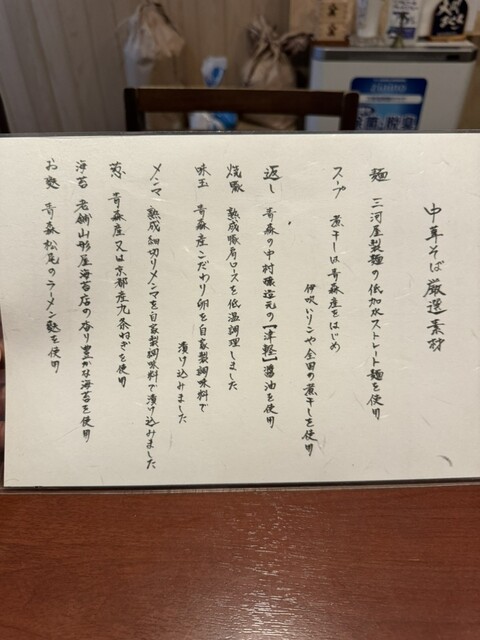 中華そば厳選素材
麺 三河屋製麺の低加水ストレート麺を使用
スープ 煮干しは青森産をはじめ
伊吹いりこや金田の煮干しを使用
返し 青森の中村醸造元の【津軽】醤油を使用
焼豚 熟成豚肩ロースを低温調理しました
味玉 青森産こだわり卵を自家製調味料で
漬け込みました
メンマ 熟成細切りメンマを自家製調味料で漬け込みました
葱 青森産又は京都産九条ねぎを使用
海苔 老舗山形屋海苔店の香り豊かな海苔を使用
お麩 青森松尾のラーメン麩を使用